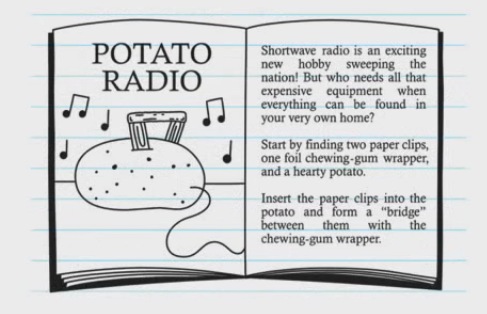 POTATO
RADIO
Shortwave radio is an exciting
new hobby sweeping the
nation! But who needs all that
expensive equipment when
everything can be found in
your very own home?
Start by finding two paper clips,
one foil chewing-gum wrapper,
and a hearty potato.
Insert the paper clips into the
potato and form a “bridge”
between them with the
chewing-gum wrapper.